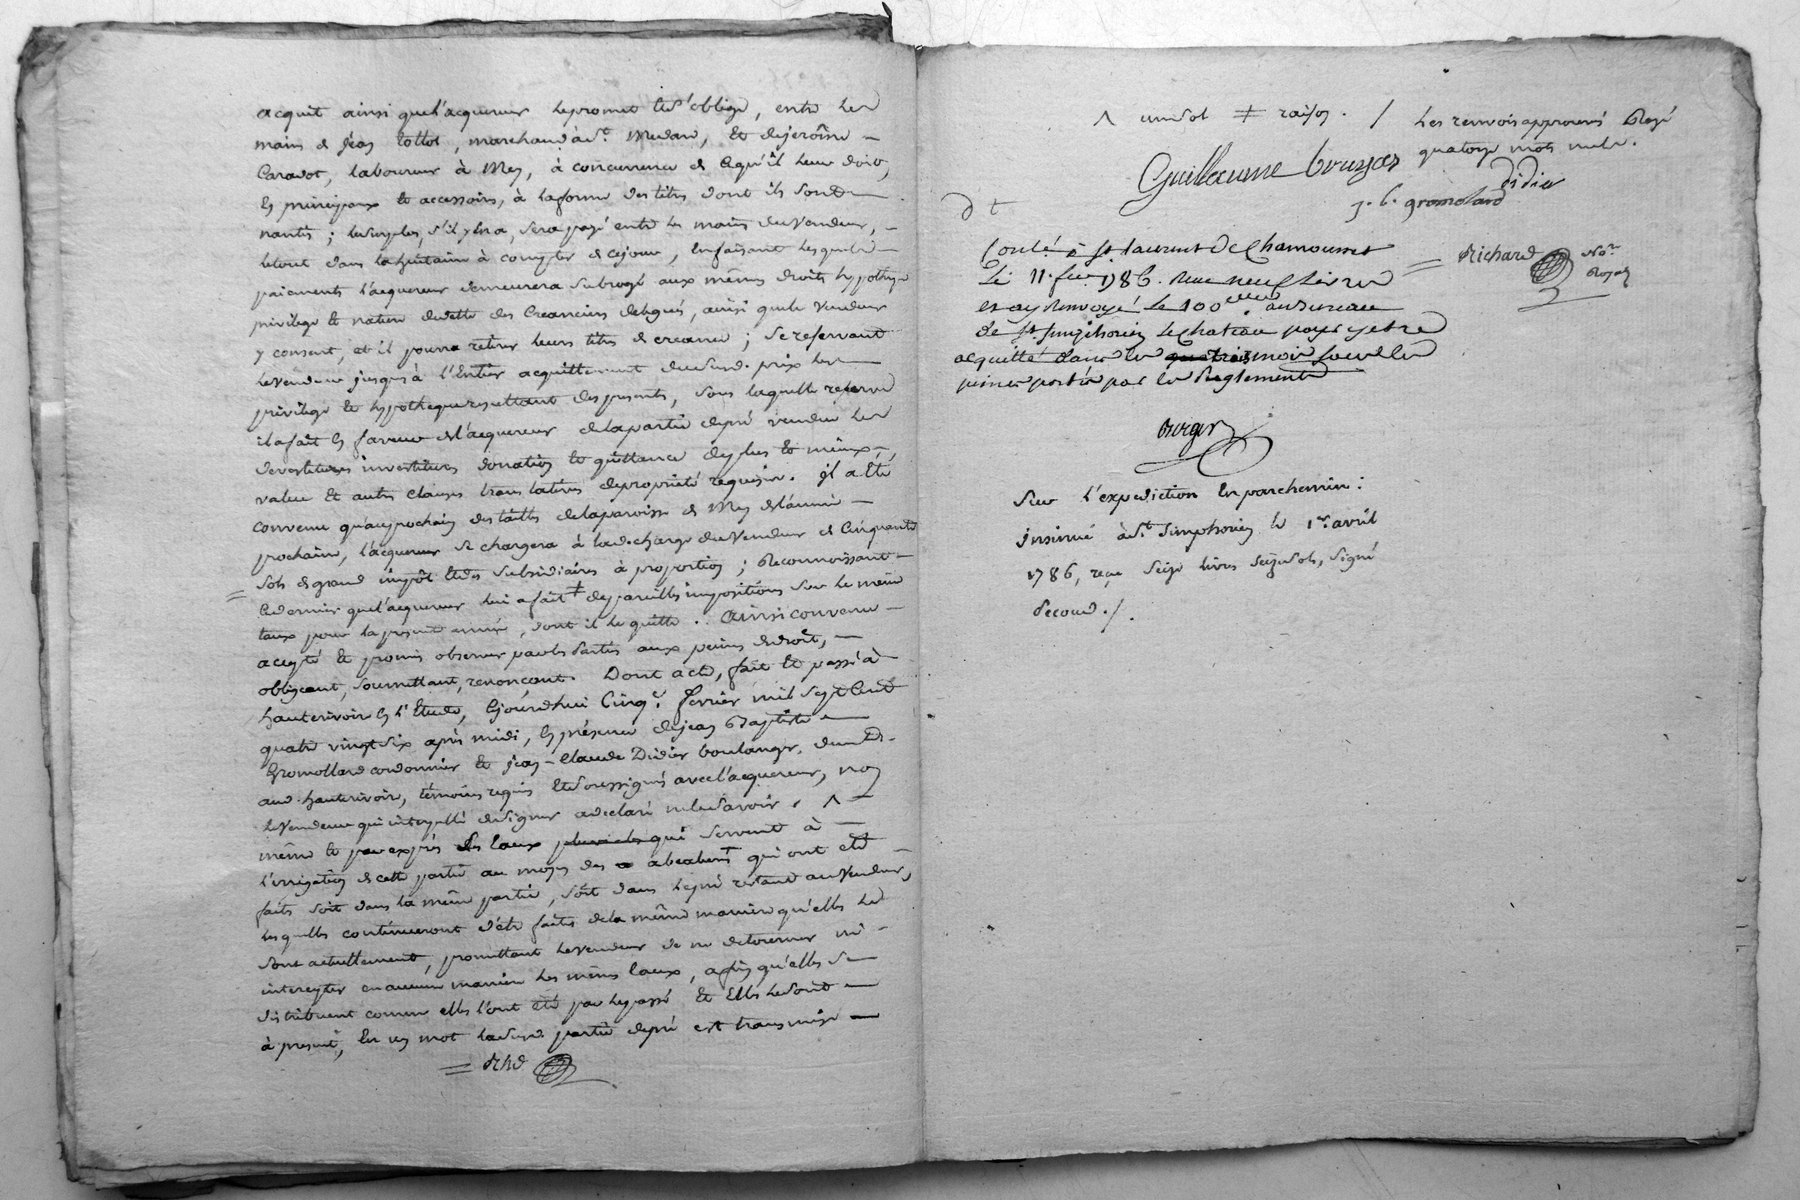 acquit ainsi quel'acquereur lepromet ets'oblige, entre les
mains de jean tollot, marchand à St. Medard, et dejerôme
Caradot, laboureur à Mey, à concurrence de cequ'il leur doit,
en principaux et accessoirs, à laforme des titres dont ils sont
nantis; lesurplus, s'il y en a, sera payé entre les mains duvendeur,
letout dans lahuitaine à compter de cejour, en faisant lesquels
paiements l'acquereur demeurera subrogé aux mêmes droits hypotheque
privilege et nature dedette des Creanciers delegués, ainsi quele vendeur
y consent, et il pourra retirer leurs titres de creance; se reservant
levendeur jusques à l'Entier acquittement dudit prix les
privilege et hypotheque resultant des presentes, sous laquelle reserve
il a fait en faveur del'acquereur delapartie depré vendue les
devestitures investitures donation et quittance deplus et mieux
value et autres clauses translatives depropriété requises. il a été
convenu qu'auprochain des tailles delaparoisse de Mey del'année
prochaine, l'acquereur se chargera à la decharge duvendeur de Cinquante
sols de grand impôt et des subsidiaires à proportion; Reconnoissant
cedernier quel'acquereur lui a fait ‡ depareilles impositions sur le même
taux pour la presente année, dont il le quitte. Ainsi convenu
accepté et promis observer parles Parties aux peines dedroit,
obligeant, soumettant, renonceant. Dont acte, fait et passé à
hauterivoire en l'Etude, cejourdhui Cinq. fevrier mil sept Cent
quatre vingt six après midi, en présence dejean Baptiste
Gromollard cordonnier et jean-Claude Didier boulanger, dud.
aud. hauterivoire, témoins requis et soussignés avec l'acquereur, non
levendeur qui interpellé designer a declaré nelesavoir. ^
même et par exprès des Eaux qui servent à
l'irrigation de cette partie au moyen des qui ont été
faits soit dans la même partie, soit dans lepré restant auvendeur,
lesquelles continueront d'être faites dela même maniere qu'elles le
sont actuellement, promettant levendeur de ne detourner ni
intercepter en aucune maniere les mêmes Eaux, afin qu'elles se
distribuent comme elles l'ont été par lepassé et Elles lesont
à present, En un mot ladite partie depré est transmise
= Rhd
^ un sol ‡ raison. /
Les renvois approuvés Rayé
quatorze mots nuls.
Guillaume bruyas
didier
j. b. gromolard
d t
= Richard Nore
Royal
Controlé à St. laurent de Chamousset
le 11. fev. 1786. Reçu neuf livres
et ay Renvoyé le 100eme au bureau
de St. Simphorien le Chateau pour y etre
acquitté dans les trois mois sous les
peines portées par les Reglements
Sur l'expedition en parchemin:
insinué à St. Simphorien le 1er. avril
1786, reçu seize livres seize sols, signé
Secoud. /.